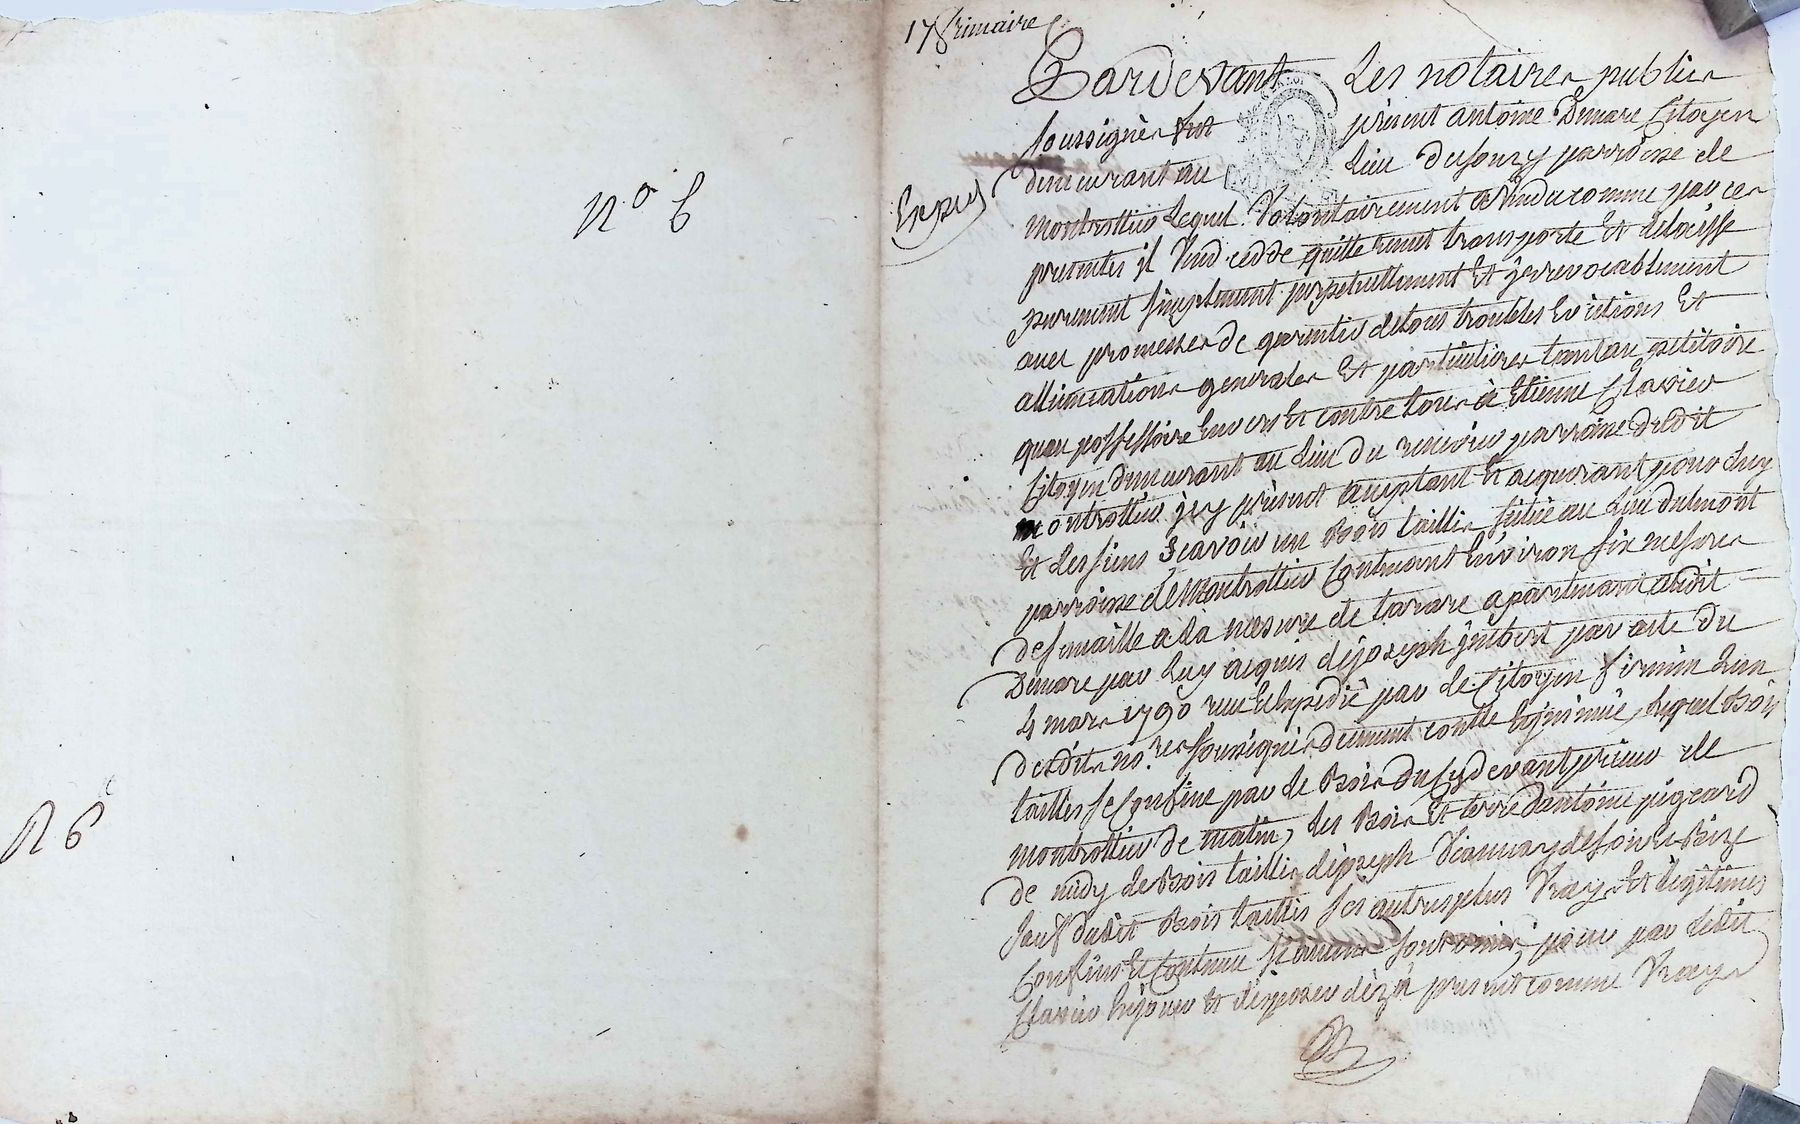 n° 6
N 6
17 frimaire
Expés
Pardevant Les notaires publics
soussignés fut présent antoine Dumare Citoyen
demeurant au Lieu dusouzy parroisse de
montrottier Lequel Volontairement a vendu comme par ces
presentes il Vend cedde quitte remet transporte Et delaisse
purement simplement perpetuellement Et jrrevocablement
avec promesses de garentir detous troubles Evictions Et
allienations generales Et particulieres tantau petitoire
quau possessoire Envers Et contre tous à Etienne Clavier
Citoyen demeurant au Lieu du parroisse dudit
montrottier jcy présent acceptant Et acquerant pour Luy
Et Les siens Scavoir un Bois taillis situé au Lieu dulmont
parroisse de Montrottier Contenant Environ six mesures
desemaille a la mesure de tarare apartenant audit
Dumare par Luy acquis dejoseph jmbert par acte du
4 mars 1790 recu Et Expedié par le Citoyen firmin L'un
desdits no.res soussignés dument contlé Et jnsinué, Lequel Bois
taillis se Confine par le Bois du Cydevant prieur de
montrottier de matin, Les Bois Et terre dantoine pigeard
de midy Le Bois taillis dejoseph Viannay de soir Et Bize
sauf dudit Bois taillis ses autres plus Vrays Et Legitimes
Confins Et Contenu sont omis, pour par Ledit
Clavier En jouir Et disposer dèz à present comme Vrays